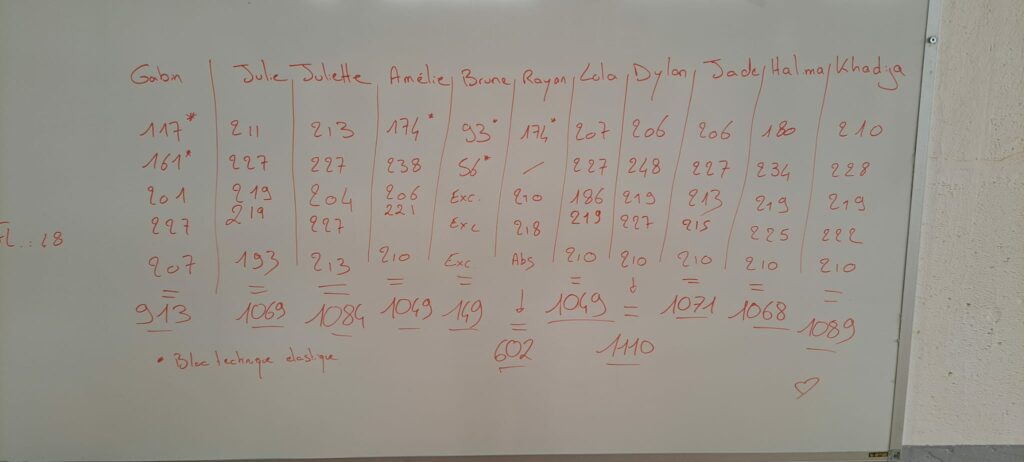 Gabin Julie Juliette Amélie Brune Rayan Lola Dylan Jade Halma Khadija
117* 211 213 174* 93* 174* 207 206 206 180 210
161* 227 227 238 56* / 227 248 227 234 228
201 219 204 206 Exc. 210 186 219 213 219 219
227 219 227 221 Exc 218 219 227 215 225 222
207 193 213 210 Exc Abs 210 210 210 210 210
= = = = = ↓ = ↓ = = =
913 1069 1084 1049 149 = 1049 = 1071 1068 1089
602 1110
* Bloc technique elastique
♡